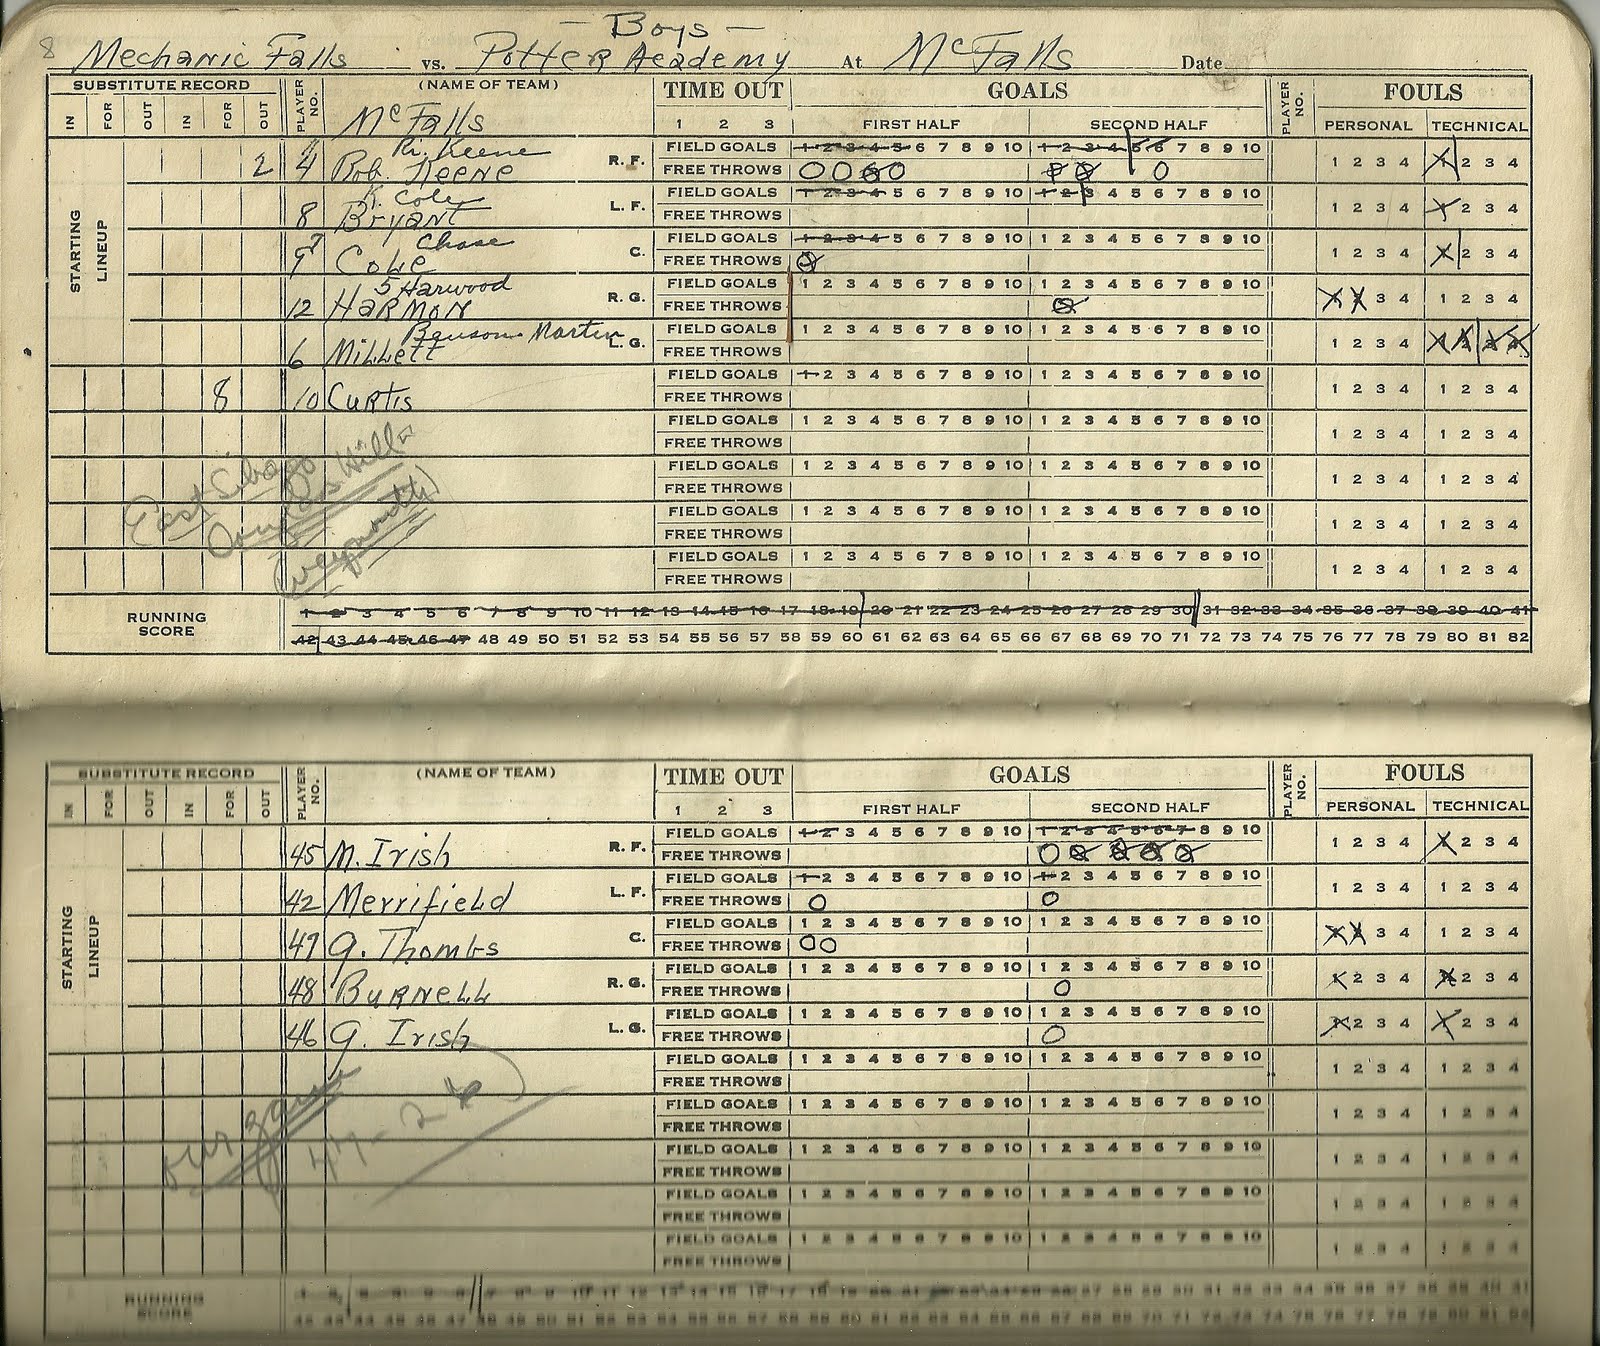 - Boys -
8 Mechanic Falls vs. Potter Academy At Mc Falls Date
SUBSTITUTE RECORD PLAYER NO. (NAME OF TEAM) TIME OUT GOALS PLAYER NO. FOULS
IN FOR OUT IN FOR OUT Mc Falls 1 2 3 FIRST HALF SECOND HALF PERSONAL TECHNICAL
STARTING LINEUP
R. Keene FIELD GOALS 1 2 3 4 5 6 7 8 9 10 1 2 3 4 5 6 7 8 9 10
2 4 Bob Keene R. F. FREE THROWS 1 2 3 4 1 2 3 4
K. Cole FIELD GOALS 1 2 3 4 5 6 7 8 9 10 1 2 3 4 5 6 7 8 9 10
8 Bryant L. F. FREE THROWS 1 2 3 4 1 2 3 4
7 Chase FIELD GOALS 1 2 3 4 5 6 7 8 9 10 1 2 3 4 5 6 7 8 9 10
9 Cole C. FREE THROWS 1 2 3 4 1 2 3 4
5 Harwood FIELD GOALS 1 2 3 4 5 6 7 8 9 10 1 2 3 4 5 6 7 8 9 10
12 HARMON R. G. FREE THROWS 1 2 3 4 1 2 3 4
Benson Martin FIELD GOALS 1 2 3 4 5 6 7 8 9 10 1 2 3 4 5 6 7 8 9 10
6 Millett L. G. FREE THROWS 1 2 3 4 1 2 3 4
FIELD GOALS 1 2 3 4 5 6 7 8 9 10 1 2 3 4 5 6 7 8 9 10
8 10 Curtis FREE THROWS 1 2 3 4 1 2 3 4
FIELD GOALS 1 2 3 4 5 6 7 8 9 10 1 2 3 4 5 6 7 8 9 10
FREE THROWS 1 2 3 4 1 2 3 4
East Sebago FIELD GOALS 1 2 3 4 5 6 7 8 9 10 1 2 3 4 5 6 7 8 9 10
Douglas Hill FREE THROWS 1 2 3 4 1 2 3 4
(Weymouth) FIELD GOALS 1 2 3 4 5 6 7 8 9 10 1 2 3 4 5 6 7 8 9 10
FREE THROWS 1 2 3 4 1 2 3 4
FIELD GOALS 1 2 3 4 5 6 7 8 9 10 1 2 3 4 5 6 7 8 9 10
FREE THROWS 1 2 3 4 1 2 3 4
RUNNING SCORE 1 2 3 4 5 6 7 8 9 10 11 12 13 14 15 16 17 18 19 20 21 22 23 24 25 26 27 28 29 30 31 32 33 34 35 36 37 38 39 40 41
42 43 44 45 46 47 48 49 50 51 52 53 54 55 56 57 58 59 60 61 62 63 64 65 66 67 68 69 70 71 72 73 74 75 76 77 78 79 80 81 82
SUBSTITUTE RECORD PLAYER NO. (NAME OF TEAM) TIME OUT GOALS PLAYER NO. FOULS
IN FOR OUT IN FOR OUT 1 2 3 FIRST HALF SECOND HALF PERSONAL TECHNICAL
STARTING LINEUP
FIELD GOALS 1 2 3 4 5 6 7 8 9 10 1 2 3 4 5 6 7 8 9 10
45 M. Irish R. F. FREE THROWS 1 2 3 4 1 2 3 4
FIELD GOALS 1 2 3 4 5 6 7 8 9 10 1 2 3 4 5 6 7 8 9 10
42 Merrifield L. F. FREE THROWS 1 2 3 4 1 2 3 4
FIELD GOALS 1 2 3 4 5 6 7 8 9 10 1 2 3 4 5 6 7 8 9 10
47 G. Thombs C. FREE THROWS 1 2 3 4 1 2 3 4
FIELD GOALS 1 2 3 4 5 6 7 8 9 10 1 2 3 4 5 6 7 8 9 10
48 BURNELL R. G. FREE THROWS 1 2 3 4 1 2 3 4
FIELD GOALS 1 2 3 4 5 6 7 8 9 10 1 2 3 4 5 6 7 8 9 10
46 G. Irish L. G. FREE THROWS 1 2 3 4 1 2 3 4
FIELD GOALS 1 2 3 4 5 6 7 8 9 10 1 2 3 4 5 6 7 8 9 10
FREE THROWS 1 2 3 4 1 2 3 4
our game 47-26 FIELD GOALS 1 2 3 4 5 6 7 8 9 10 1 2 3 4 5 6 7 8 9 10
FREE THROWS 1 2 3 4 1 2 3 4
FIELD GOALS 1 2 3 4 5 6 7 8 9 10 1 2 3 4 5 6 7 8 9 10
FREE THROWS 1 2 3 4 1 2 3 4
FIELD GOALS 1 2 3 4 5 6 7 8 9 10 1 2 3 4 5 6 7 8 9 10
FREE THROWS 1 2 3 4 1 2 3 4
FIELD GOALS 1 2 3 4 5 6 7 8 9 10 1 2 3 4 5 6 7 8 9 10
FREE THROWS 1 2 3 4 1 2 3 4
RUNNING SCORE